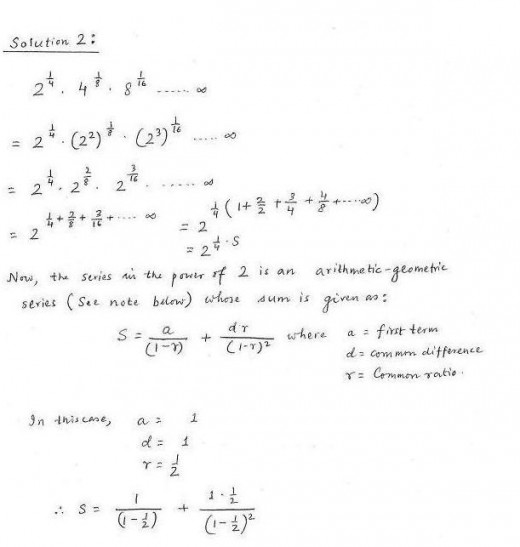 Solution 2:
2^(1/4) . 4^(1/8) . 8^(1/16) ...... ∞
= 2^(1/4) . (2^2)^(1/8) . (2^3)^(1/16) ..... ∞
= 2^(1/4) . 2^(2/8) . 2^(3/16) . ...... ∞
= 2^(1/4 + 2/8 + 3/16 + .... ∞) = 2^(1/4 (1 + 2/2 + 3/4 + 4/8 + .... ∞))
= 2^(1/4 . S)
Now, the series in the power of 2 is an arithmetic-geometric
series (See note below) whose sum is given as:
S = a/(1-r) + dr/(1-r)^2 where a = first term
d = common difference
r = Common ratio.
In this case, a = 1
d = 1
r = 1/2
∴ S = 1/(1 - 1/2) + (1 · 1/2)/(1 - 1/2)^2